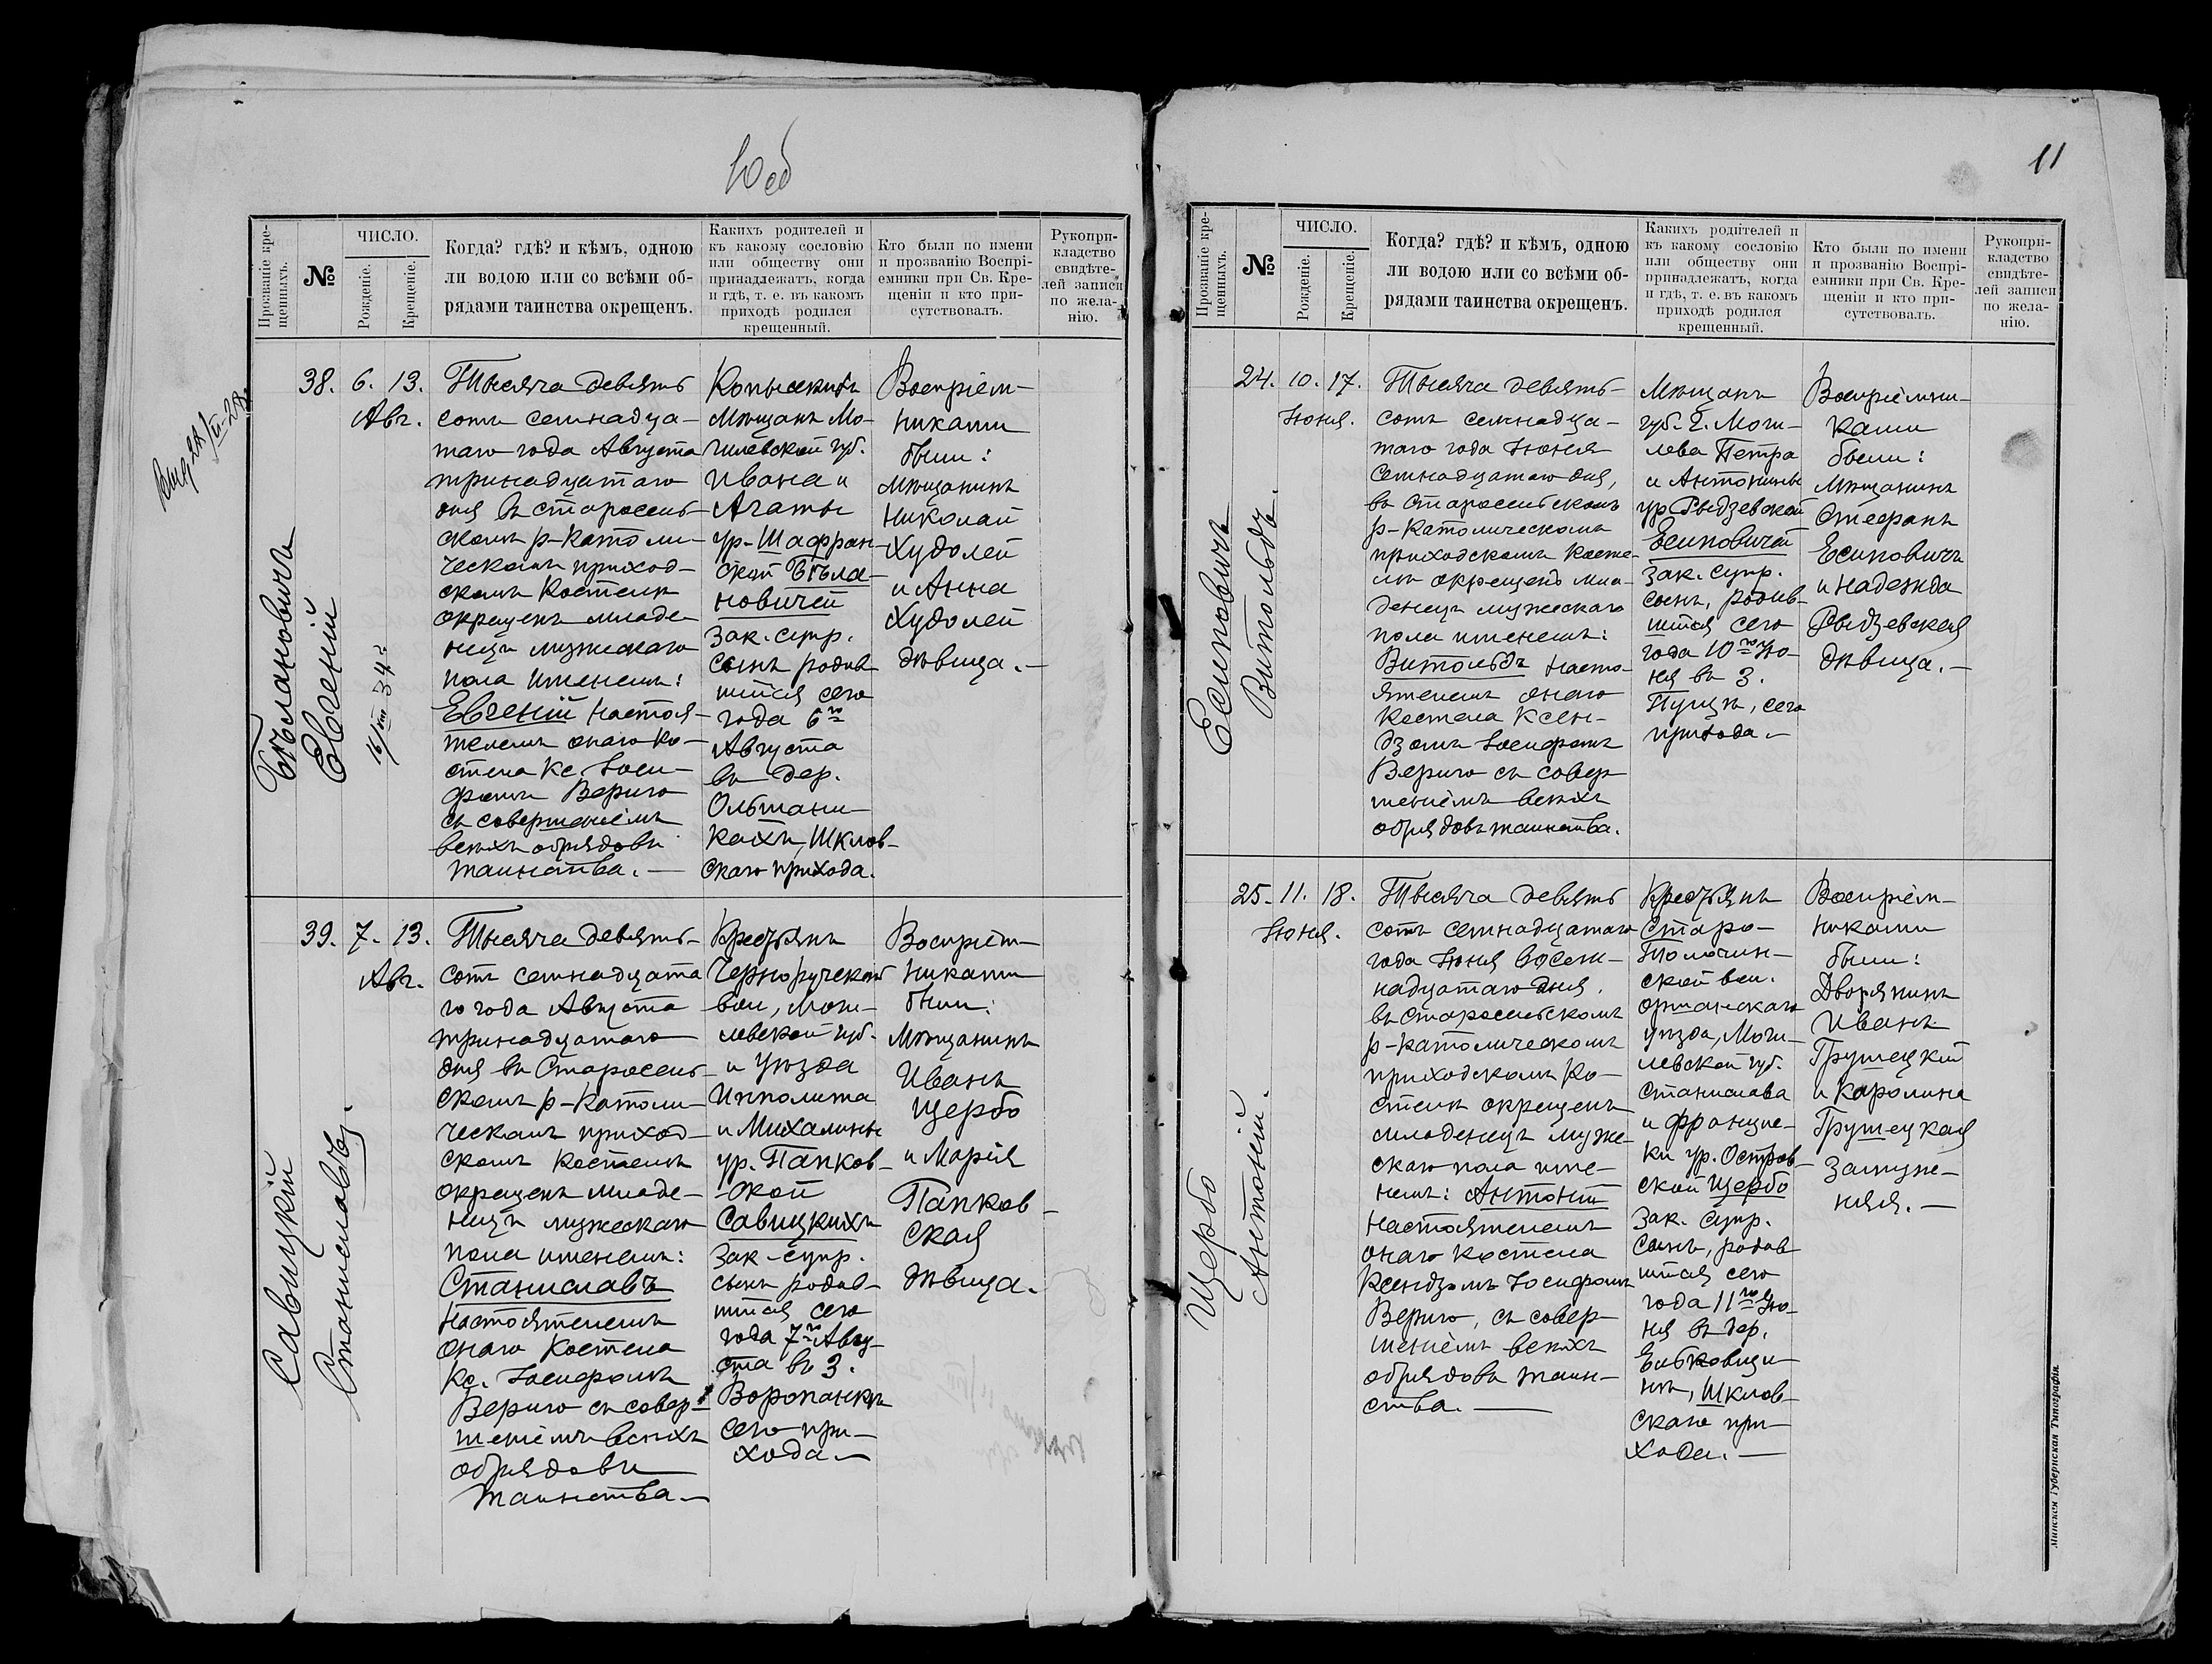 10 об
11
Прозваніе кре-
щенныхъ.
№
ЧИСЛО.
Рожденіе.
Крещеніе.
Когда? гдѣ? и кѣмъ, одною
ли водою или со всѣми об-
рядами таинства окрещенъ.
Какихъ родителей и
къ какому сословію
или обществу они
принадлежатъ, когда
и гдѣ, т. е. въ какомъ
приходѣ родился
крещенный.
Кто были по имени
и прозванію Воспрі-
емники при Св. Кре-
щеніи и кто при-
сутствовалъ.
Рукопри-
кладство
свидѣте-
лей записи
по жела-
нію.
Бѣлановичъ
Евгеній
38. 6. 13.
Авг.
Тысяча девять
сотъ семнадца-
таго года Августа
тринадцатаго
дня въ старосель-
скомъ р-католи-
ческомъ приход-
скомъ костелѣ
окрещенъ младе-
нецъ мужескаго
пола именемъ:
Евгеній настоя-
телемъ онаго ко-
стела кс. Іоси-
фомъ Вериго
съ совершеніемъ
всѣхъ обрядовъ
таинства.—
Копысскихъ
мѣщанъ Мо-
гилевской губ.
Ивана и
Агаты
ур. Шафран-
ской Бѣла-
новичей
зак. супр.
сынъ родив-
шійся сего
года 6го
Августа
въ дер.
Ольшани-
кахъ, Шклов-
скаго прихода.
Воспріем-
никами
были:
мѣщанинъ
Николай
Худолей
и Анна
Худолей
дѣвица.—
Савицкій
Станиславъ.
39. 7. 13.
Авг.
Тысяча девять-
сотъ семнадцата
го года Августа
тринадцатаго
дня въ Старосель-
скомъ р-католи-
ческомъ приход-
скомъ костелѣ
окрещенъ младе-
нецъ мужескаго
пола именемъ:
Станиславъ
настоятелемъ
онаго костела
кс. Іосифомъ
Вериго съ совер-
шеніемъ всѣхъ
обрядовъ
таинства.—
Крестьянъ
Чернорученской
вол., Моги-
левской губ.
и уѣзда
Ипполита
и Михалины
ур. Папков-
ской
Савицкихъ
зак. супр.
сынъ родив-
шійся сего
года 7го Авгу-
ста въ З.
Воропанки
сего при-
хода.—
Воспріем-
никами
были:
Мѣщанинъ
Иванъ
Щербо
и Марія
Папков-
ская
дѣвица.
Прозваніе кре-
щенныхъ.
№
ЧИСЛО.
Рожденіе.
Крещеніе.
Когда? гдѣ? и кѣмъ, одною
ли водою или со всѣми об-
рядами таинства окрещенъ.
Какихъ родителей и
къ какому сословію
или обществу они
принадлежатъ, когда
и гдѣ, т. е. въ какомъ
приходѣ родился
крещенный.
Кто были по имени
и прозванію Воспрі-
емники при Св. Кре-
щеніи и кто при-
сутствовалъ.
Рукопри-
кладство
свидѣте-
лей записи
по жела-
нію.
Есиповичъ
Витольдъ.
24. 10. 17.
Іюня.
Тысяча девять-
сотъ семнадца-
таго года Іюня
семнадцатаго дня,
въ Старосельскомъ
р-католическомъ
приходскомъ косте-
лѣ окрещенъ мла-
денецъ мужескаго
пола именемъ:
Витольдъ насто-
ятелемъ онаго
костела ксен-
дзомъ Іосифомъ
Вериго съ совер
шеніемъ всѣхъ
обрядовъ таинства.
Мѣщанъ
губ. г. Моги-
лева Петра
и Антонины
ур. Рыдзевской
Есиповичей
зак. супр.
сынъ, родив-
шійся сего
года 10го Ію-
ня въ З.
Пуще, сего
прихода.—
Воспріемни-
ками
были:
мѣщанинъ
Стефанъ
Есиповичъ
и Надежда
Рыдзевская
дѣвица.—
Щербо
Антоній.
25. 11. 18.
Іюня.
Тысяча девять
сотъ семнадцатаго
года Іюня восем-
надцатаго дня,
въ Старосельскомъ
р-католическомъ
приходскомъ ко-
стелѣ окрещенъ
младенецъ муже-
скаго пола име-
немъ: Антоній
настоятелемъ
онаго костела
ксендзомъ Іосифомъ
Вериго, съ совер-
шеніемъ всѣхъ
обрядовъ таин-
ства.—
Крестьянъ
Старо-
Толочин-
ской вол.
оршанскаго
уѣзда, Моги-
левской губ.
Станислава
и Францис-
ки ур. Остров-
ской Щербо
зак. супр.
сынъ, родив-
шійся сего
года 11го Ію-
ня въ дер.
Шклов-
скаго при-
хода.—
Воспріем-
никами
были:
Дворянинъ
Иванъ
Грушецкій
и Каролина
Грушецкая
замуж-
няя.—
Минская Губернская Типографія.